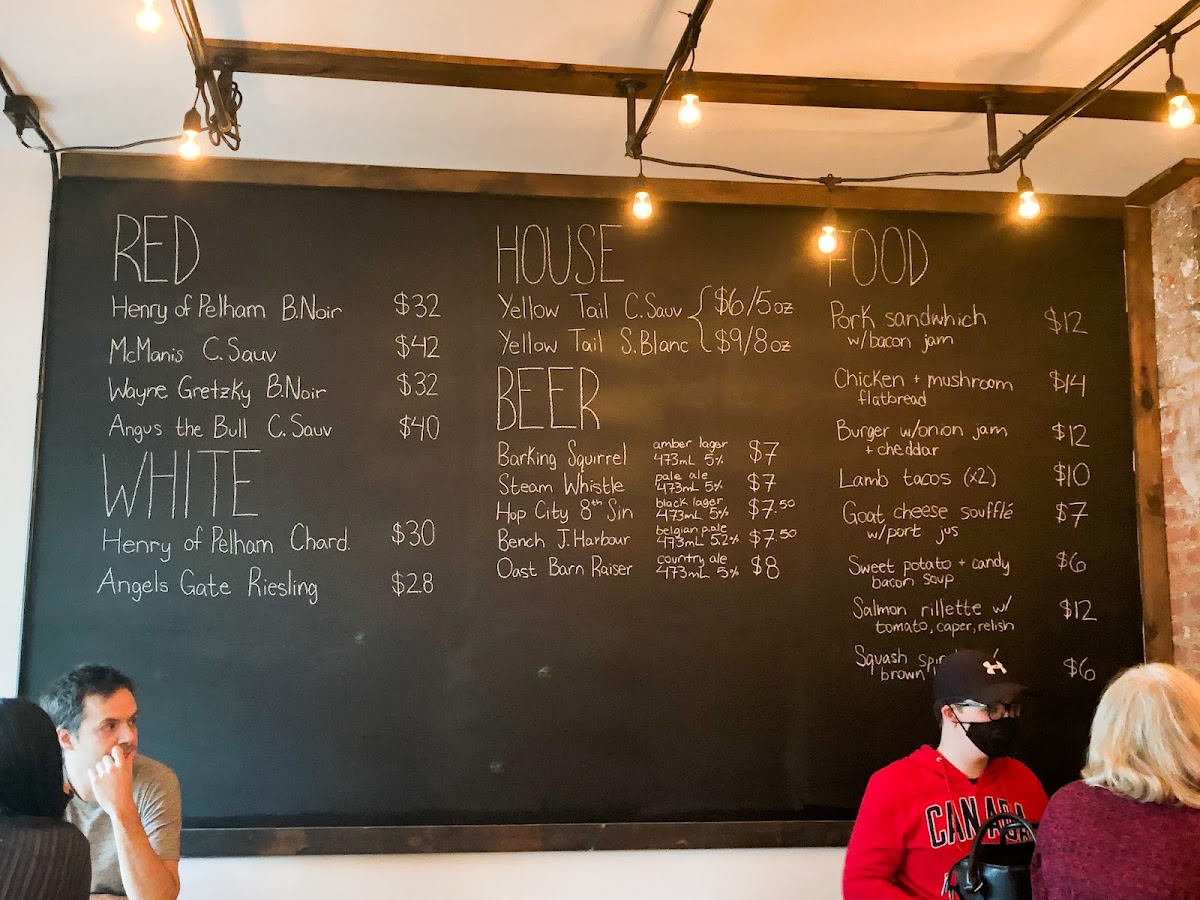 RED
Henry of Pelham B.Noir $32
McManis C.Sauv $42
Wayne Gretzky B.Noir $32
Angus the Bull C.Sauv $40
WHITE
Henry of Pelham Chard. $30
Angels Gate Riesling $28
HOUSE
Yellow Tail C.Sauv $6/5oz
Yellow Tail S.Blanc $9/8oz
BEER
Barking Squirrel amber lager 473mL 5% $7
Steam Whistle pale ale 473mL 5% $7
Hop City 8th Sin black lager 473mL 5% $7.50
Bench J.Harbour belgian p.ale 473mL 5.2% $7.50
Oast Barn Raiser country ale 473mL 5% $8
FOOD
Pork sandwhich $12
w/bacon jam
Chicken + mushroom $14
flatbread
Burger w/onion jam $12
+ cheddar
Lamb tacos (x2) $10
Goat cheese soufflé $7
w/port jus
Sweet potato + candy $6
bacon soup
Salmon rillette w/ $12
tomato, caper, relish
Squash $6
brown
CANADA